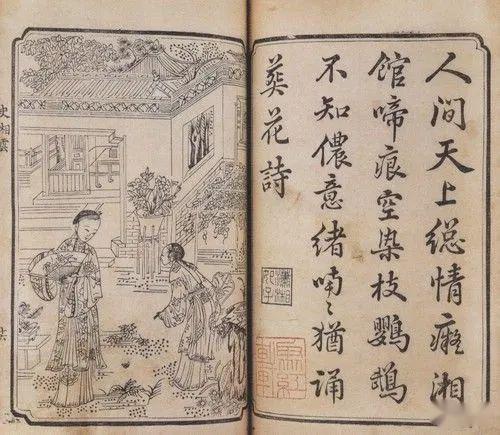 人間天上緫情癡湘
館啼痕空染枝鸚鵡
不知儂意緒喃〻猶誦
葬花詩
史湘雲